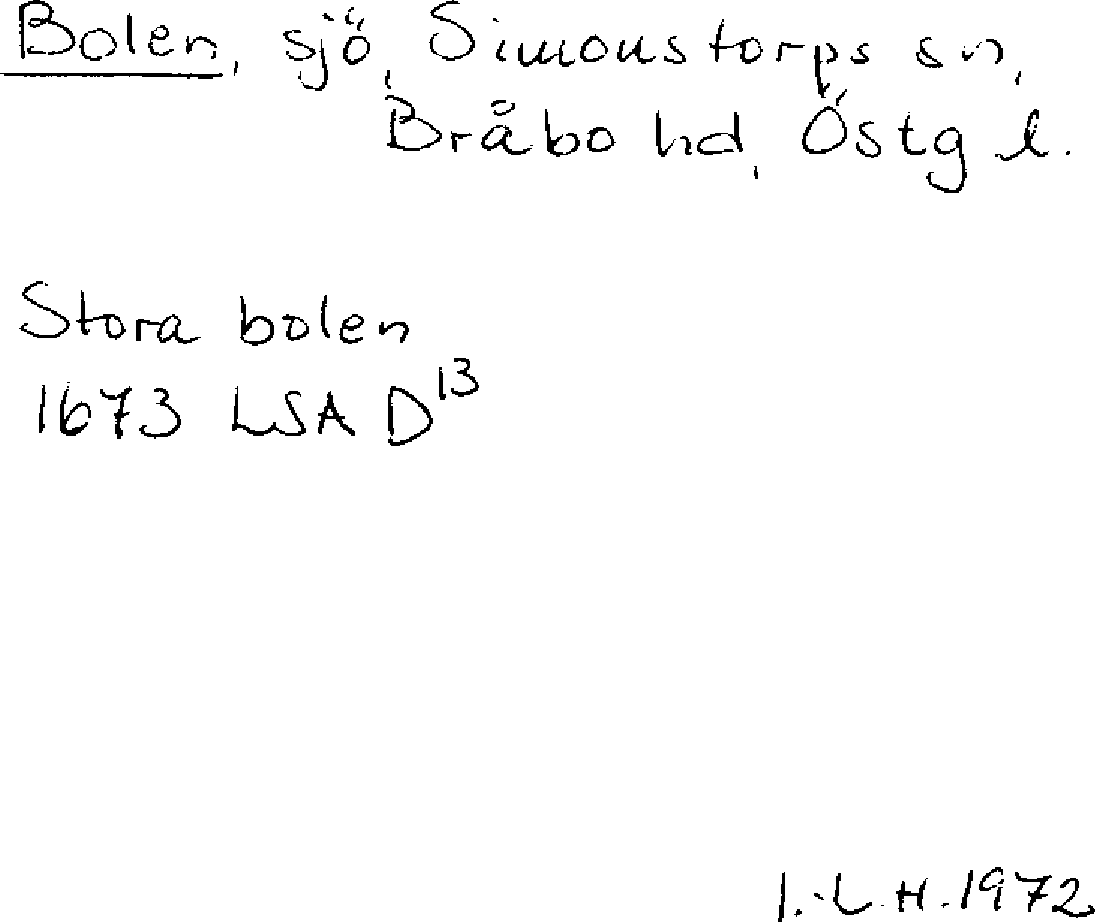 Bolen, sjö, Simonstorps sn,
Bråbo hd, Östg l.
Stora bolen
1673 LSA D¹³
I.-L.H.1972